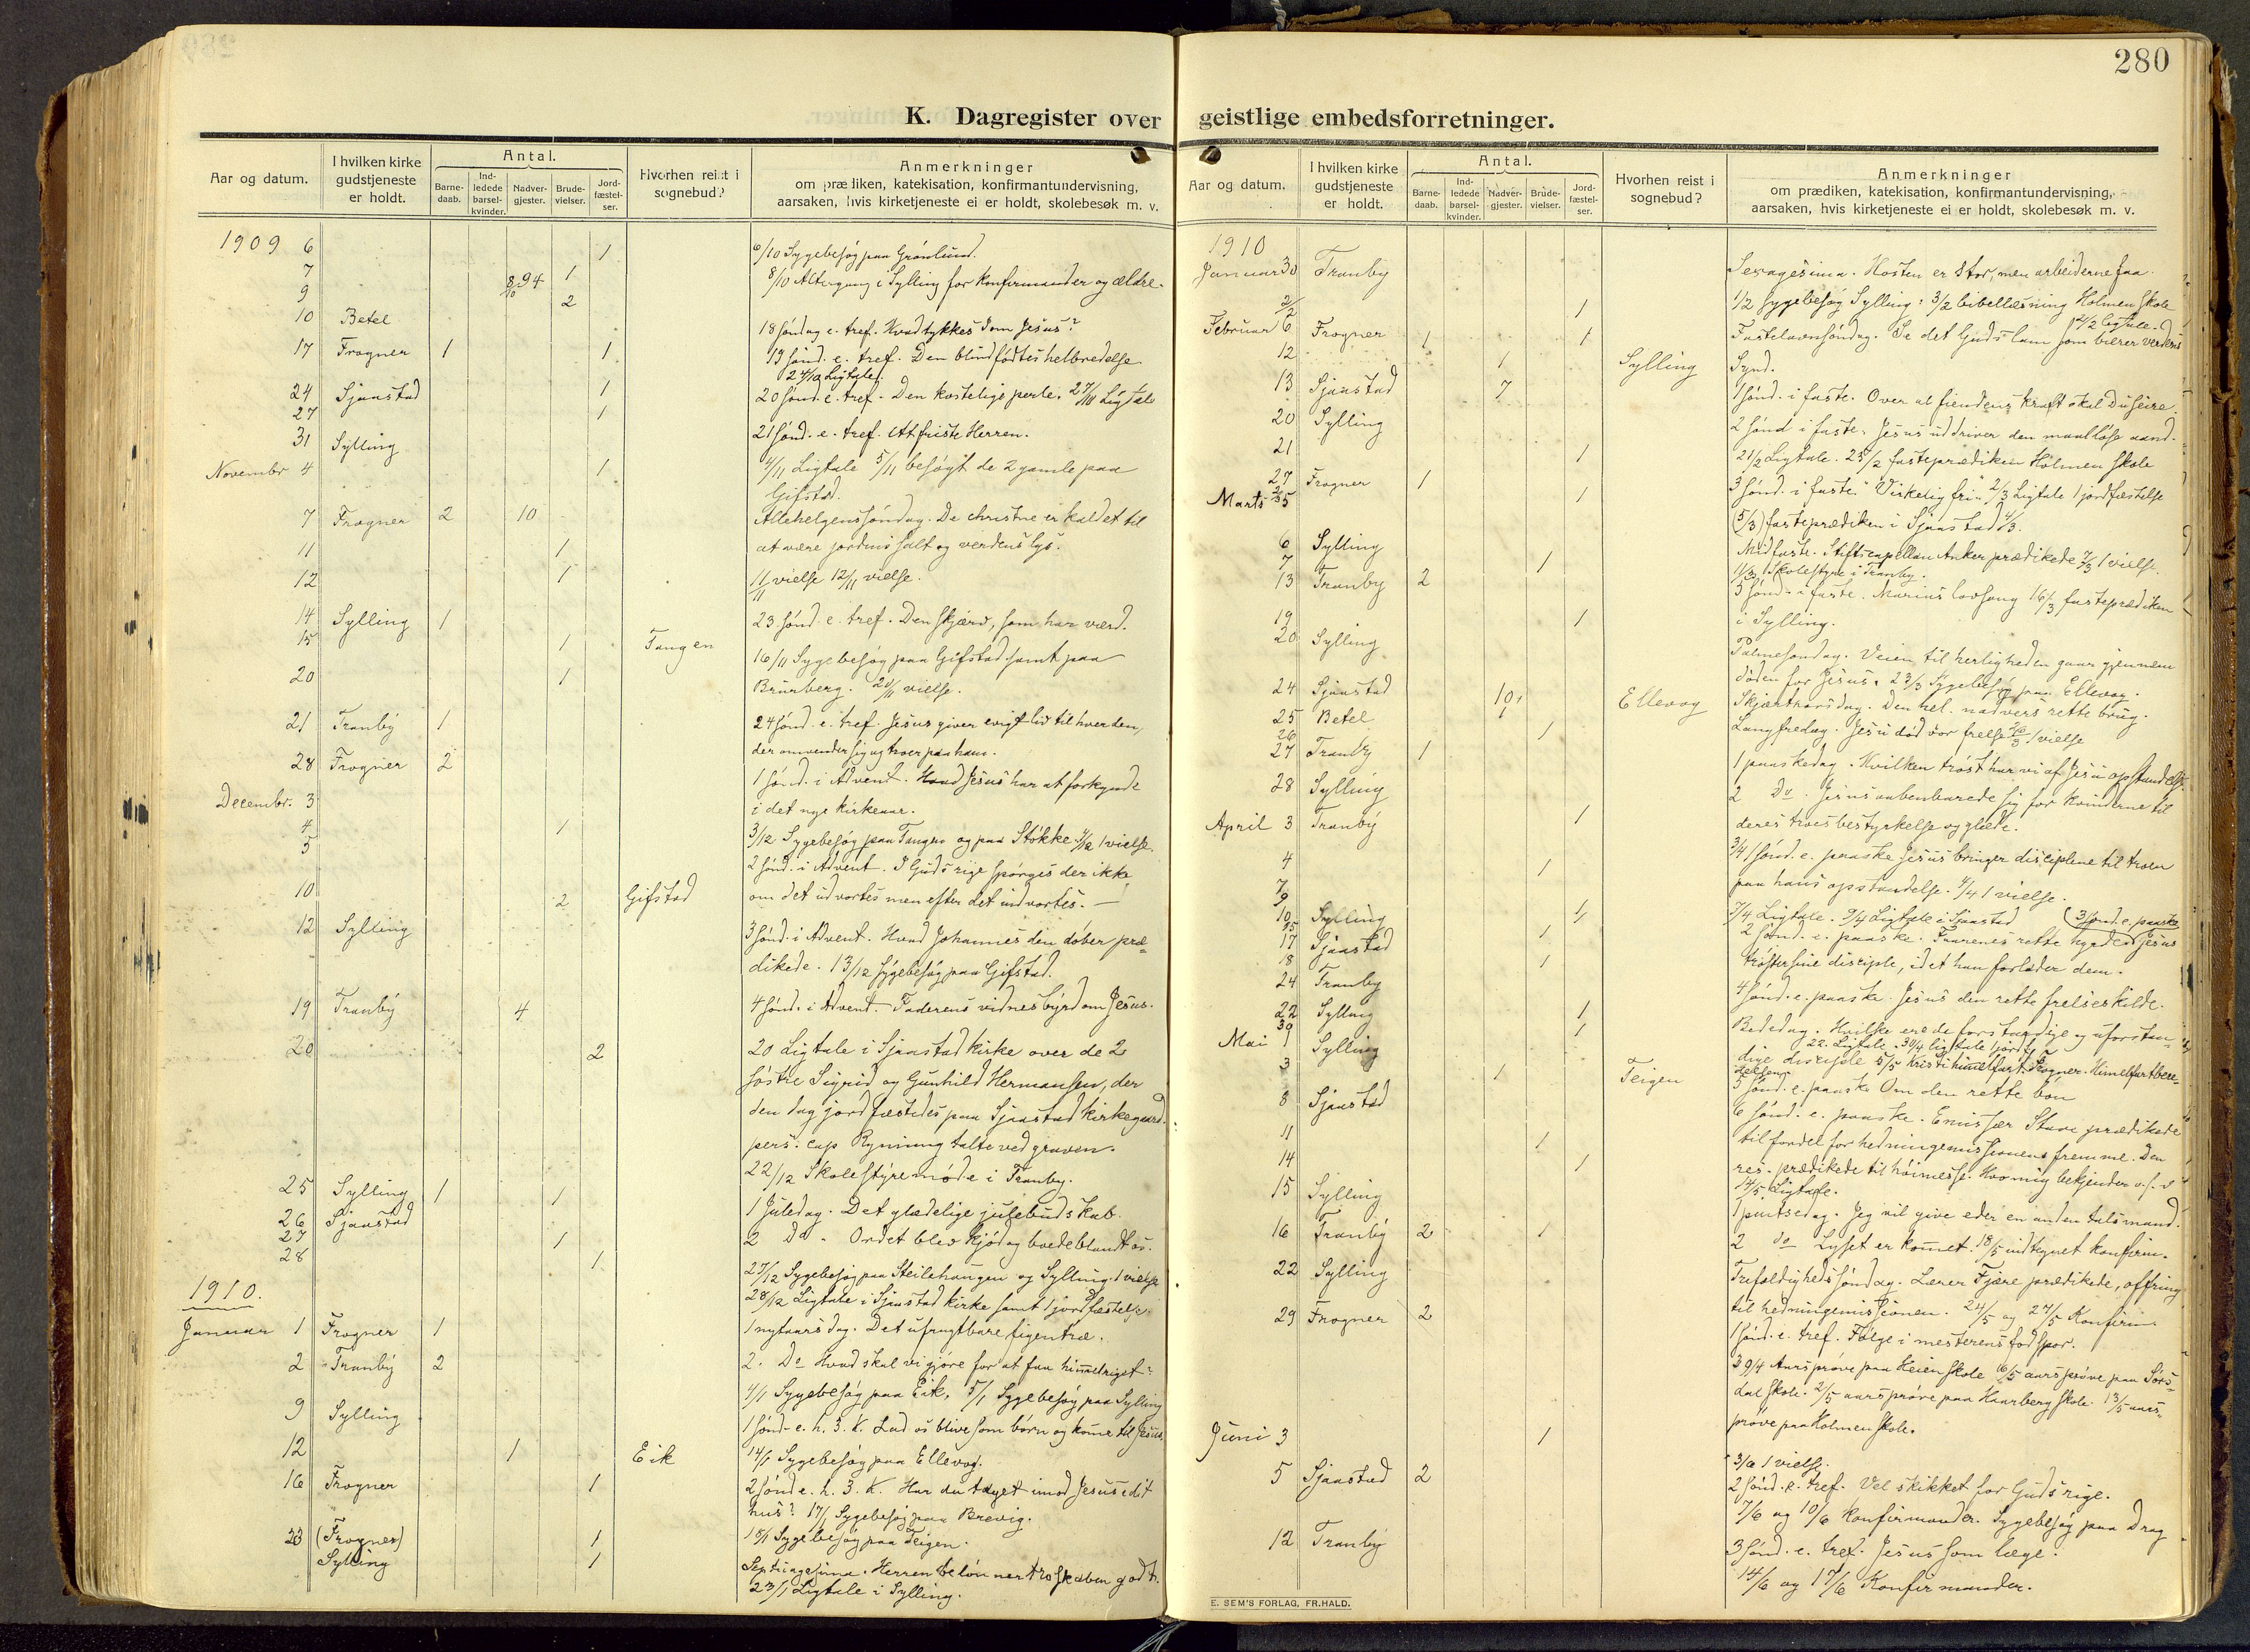 280
K. Dagregister over geistlige embedsforretninger.
Aar og datum.
I hvilken kirke gudstjeneste er holdt.
Antal.
Barne-daab.
Ind-ledede barsel-kvinder.
Nadver-gjester.
Brude-vielser.
Jord-fæstel-ser.
Hvorhen reist i sognebud?
Anmerkninger
om prædiken, katekisation, konfirmantundervisning,
aarsaken, hvis kirketjeneste ei er holdt, skolebesøk m. v.
1909 6 1 6/10 Sygebesøg paa Grønlund.
7 1
8/10 94 8/10 Altergang i Sylling for Konfirmander og ældre.
9 2
10 Betel 18 søndag e. tref. Hvad tykkes Dem om Jesus?
17 Frogner 1 1 19 sønd. e. tref. Den blindfødtes helbredelse
24/10 Ligtale.
24 Sjaastad 1 20 sønd. e. tref. Den kostelige perle. 27/10 Ligtale
27 1
31 Sylling 21 sønd. e. tref. At friste Herren.
Novembr 4 1 4/11 Ligtale 5/11 besøgt de 2 gamle paa
Gifstad.
7 Frogner 2 10 Allehelgenssøndag. De christne er kaldet til
at være jordens salt og verdens lys.
11 1
12 1 11/11 vielse 12/11 vielse.
14 Sylling 1 23 sønd. e. tref. Den skjærv, som har værd.
15 1 Tangen
16/11 Sygebesøg paa Gifstad samt paa
20 1 Brurberg. 20/11 vielse.
21 Tranby 1 24 sønd. e. tref. Jesus giver evigt liv til hver den,
der omvender sig og troer paa ham.
28 Frogner 2 1 sønd. i Advent. Hvad Jesus har at forkynde
i det nye kirkeaar.
Decembr. 3
4 1 3/12 Sygebesøg paa Tangen og paa Støkke 4/12 1 vielse.
5 2 sønd. i Advent. I Guds rige spørges der ikke
10 2 Gifstad om det udvortes men efter det indvortes.
12 Sylling 3 sønd. i Advent. Hvad Johannes den døber præ=
dikede. 13/12 sygebesøg paa Gifstad.
19 Tranby 4 4 sønd. i Advent. Faderens vidnesbyrd om Jesus.
20 2 20 Ligtale i Sjaastad kirke over de 2
søstre Sigrid og Gunhild Hermansen, der
den dag jordfæstedes paa Sjaastad kirkegaard.
pers. cap Rynning talte ved graven.
22/12 Skolestyremøde i Tranby.
25 Sylling 1 1 1 Juledag. Det glædelige julebudskab.
26 Sjaastad 2 Do. Ordet blev kjød og boede blandt os.
27 1
28 1 27/12 Sygebesøg paa Steilehaugen og Sylling. 1 vielse
28/12 Ligtale i Sjaastad kirke samt 1 jordfæstelse.
1910.
Januar 1 Frogner 1 1 nytaarsdag. Det ufrugtbare figentræ.
2 Tranby 2 2. Do Hvad skal vi gjøre for at faa himmelriget?
4/1 Sygebesøg paa Eik, 5/1 Sygebesøg paa Sylling
9 Sylling 1 sønd. e. h. 3. K. Lad os blive som børn og komme til Jesus.
12 1 Eik 14/1 Sygebesøg paa Ellevog.
16 Frogner 1 2 sønd e. h. 3. K. Har du taget imod Jesus i dit
hus? 17/1 Sygebesøg paa Brevig.
23 (Frogner) 1 18/1 Sygebesøg paa Teigen.
Sylling 1 Septuagesima. Herren belønner troskaben godt.
23/1 Ligtale i Sylling.
Aar og datum.
I hvilken kirke gudstjeneste er holdt.
Antal.
Barne-daab.
Ind-ledede barsel-kvinder.
Nadver-gjester.
Brude-vielser.
Jord-fæstel-ser.
Hvorhen reist i sognebud?
Anmerkninger
om prædiken, katekisation, konfirmantundervisning,
aarsaken, hvis kirketjeneste ei er holdt, skolebesøk m. v.
1910
Januar 30 Tranby Sexagesima. Høsten er stor, men arbeiderne faa.
2/2 1 1/2 sygebesøg Sylling: 3/2 bibellæsning Holmen skole
Februar 6 Frogner 1 1 Fastelavnsøndag. Se det Guds lam som bærer verdens
12 1 Sylling Synd.
13 Sjaastad 7 1 sønd. i faste. Over al fiendens kraft skal Du seire.
20 Sylling 2 sønd i faste. Jesus uddriver den maalløse aand.
21 1 21/2 Ligtale. 25/2 fasteprædiken Holmen skole
27 Frogner 1 3 sønd. i faste. "Virkelig fri". 2/3 Ligtale 1 jordfæstelse
Marts 2/3 5 1 (5/3) fasteprædiken i Sjaastad 4/3.
6 Sylling Midfaste. Stiftscapellan Anker prædikede 7/3 1 vielse.
7 1 11/3 Skolestyre i Tranby.
13 Tranby 2 5 sønd. i faste. Marias lovsang 16/3 fasteprædiken
19 1 i Sylling.
20 Sylling Palmesøndag. Veien til herligheden gaar gjennem
døden for Jesus. 23/3 Sygebesøg paa Ellevog.
24 Sjaastad 10 Ellevog Skjærthorsdag. Den hel. nadvers rette brug.
25 Betel 1 Langfredag. Jesu død vor frelse 26/3 1 vielse
26 1
27 Tranby 1 1 paaskedag. Hvilken trøst har vi af Jesu opstandelse.
28 Sylling 2 Do. Jesus aabenbarede sig for kvinderne til
April 3 Tranby 1 deres troes bestyrkelse og glæde.
3/4 1 sønd. e. paaske Jesus bringer disciplene til troen
4 1 paa hans opstandelse. 4/4 1 vielse.
7/9 7/4 Ligtale. 9/4 Ligtale i Sjaastad (3 sønd. e. paaske
10 Sylling 1 2 sønd. e. paaske. Faarenes rette hyrde. Jesus
17 Sjaastad 1 trøster sine disciple, idet han forlader dem.
18 1
24 Tranby 4 sønd. e. paaske. Jesus den rette frelseskilde.
22 Sylling 1 Bededag. Hvilke ere de forstandige og uforstan=
22. Ligtale. 30/4 ligtale 1 jordf.
30 1
Mai 1 Sylling dige disciple 5/5 Kristi himmelfart. Frogner. Himmelfartberet=
telsen.
3 1 Teigen 5 sønd. e. paaske Om den rette bøn
8 Sjaastad 6 sønd. e. paaske. Emissær Stave prædikede
11 1 til fordel for hedningemissionens fremme. Den
14 1 res. prædikede til høimesse. Hvo mig bekjender o. s. v
14/5 Ligtale.
15 Sylling 1 pintsedag. Jeg vil give eder en anden talsmand.
16 Tranby 2 1 2 do Lyset er kommet. 18/5 indtegnet konfirm.
22 Sylling Trefoldighedssøndag. Lærer Fjære prædikede, offring
til hedningemissionen. 24/5 og 27/5 Konfirm.
29 Frogner 2 1 sønd. e. tref. Følge i mesterens fodspor.
29/4 Aarsprøve paa Heien skole 6/5 aarsprøve paa Sørs=
dal skole. 2/5 aarsprøve paa Haarberg skole. 13/5 aars=
prøve paa Holmen skole.
Juni 3 1
3/6 1 vielse.
5 Sjaastad 2 2 sønd. e. tref. Vel skikket for Guds rige.
7/6 og 10/6 Konfirmander. Sygebesøg paa Drag
12 Tranby 3 sønd. e. tref. Jesus som læge.
14/6 og 17/6 Konfirmander.
E. SEM'S FORLAG, FR.HALD.